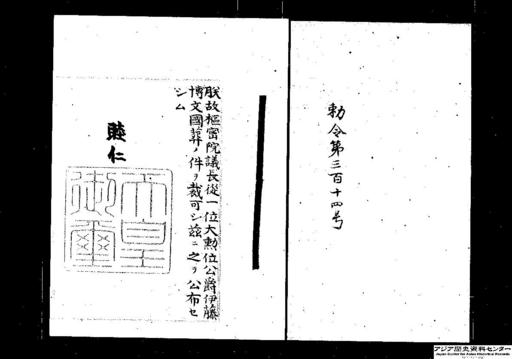 勅令第三百十四号
朕故樞密院議長從一位大勲位公爵伊藤
博文國葬ノ件ヲ裁可シ茲ニ之ヲ公布セ
シム
睦仁
天皇御璽
アジア歴史資料センター
Japan Center for Asian Historical Records